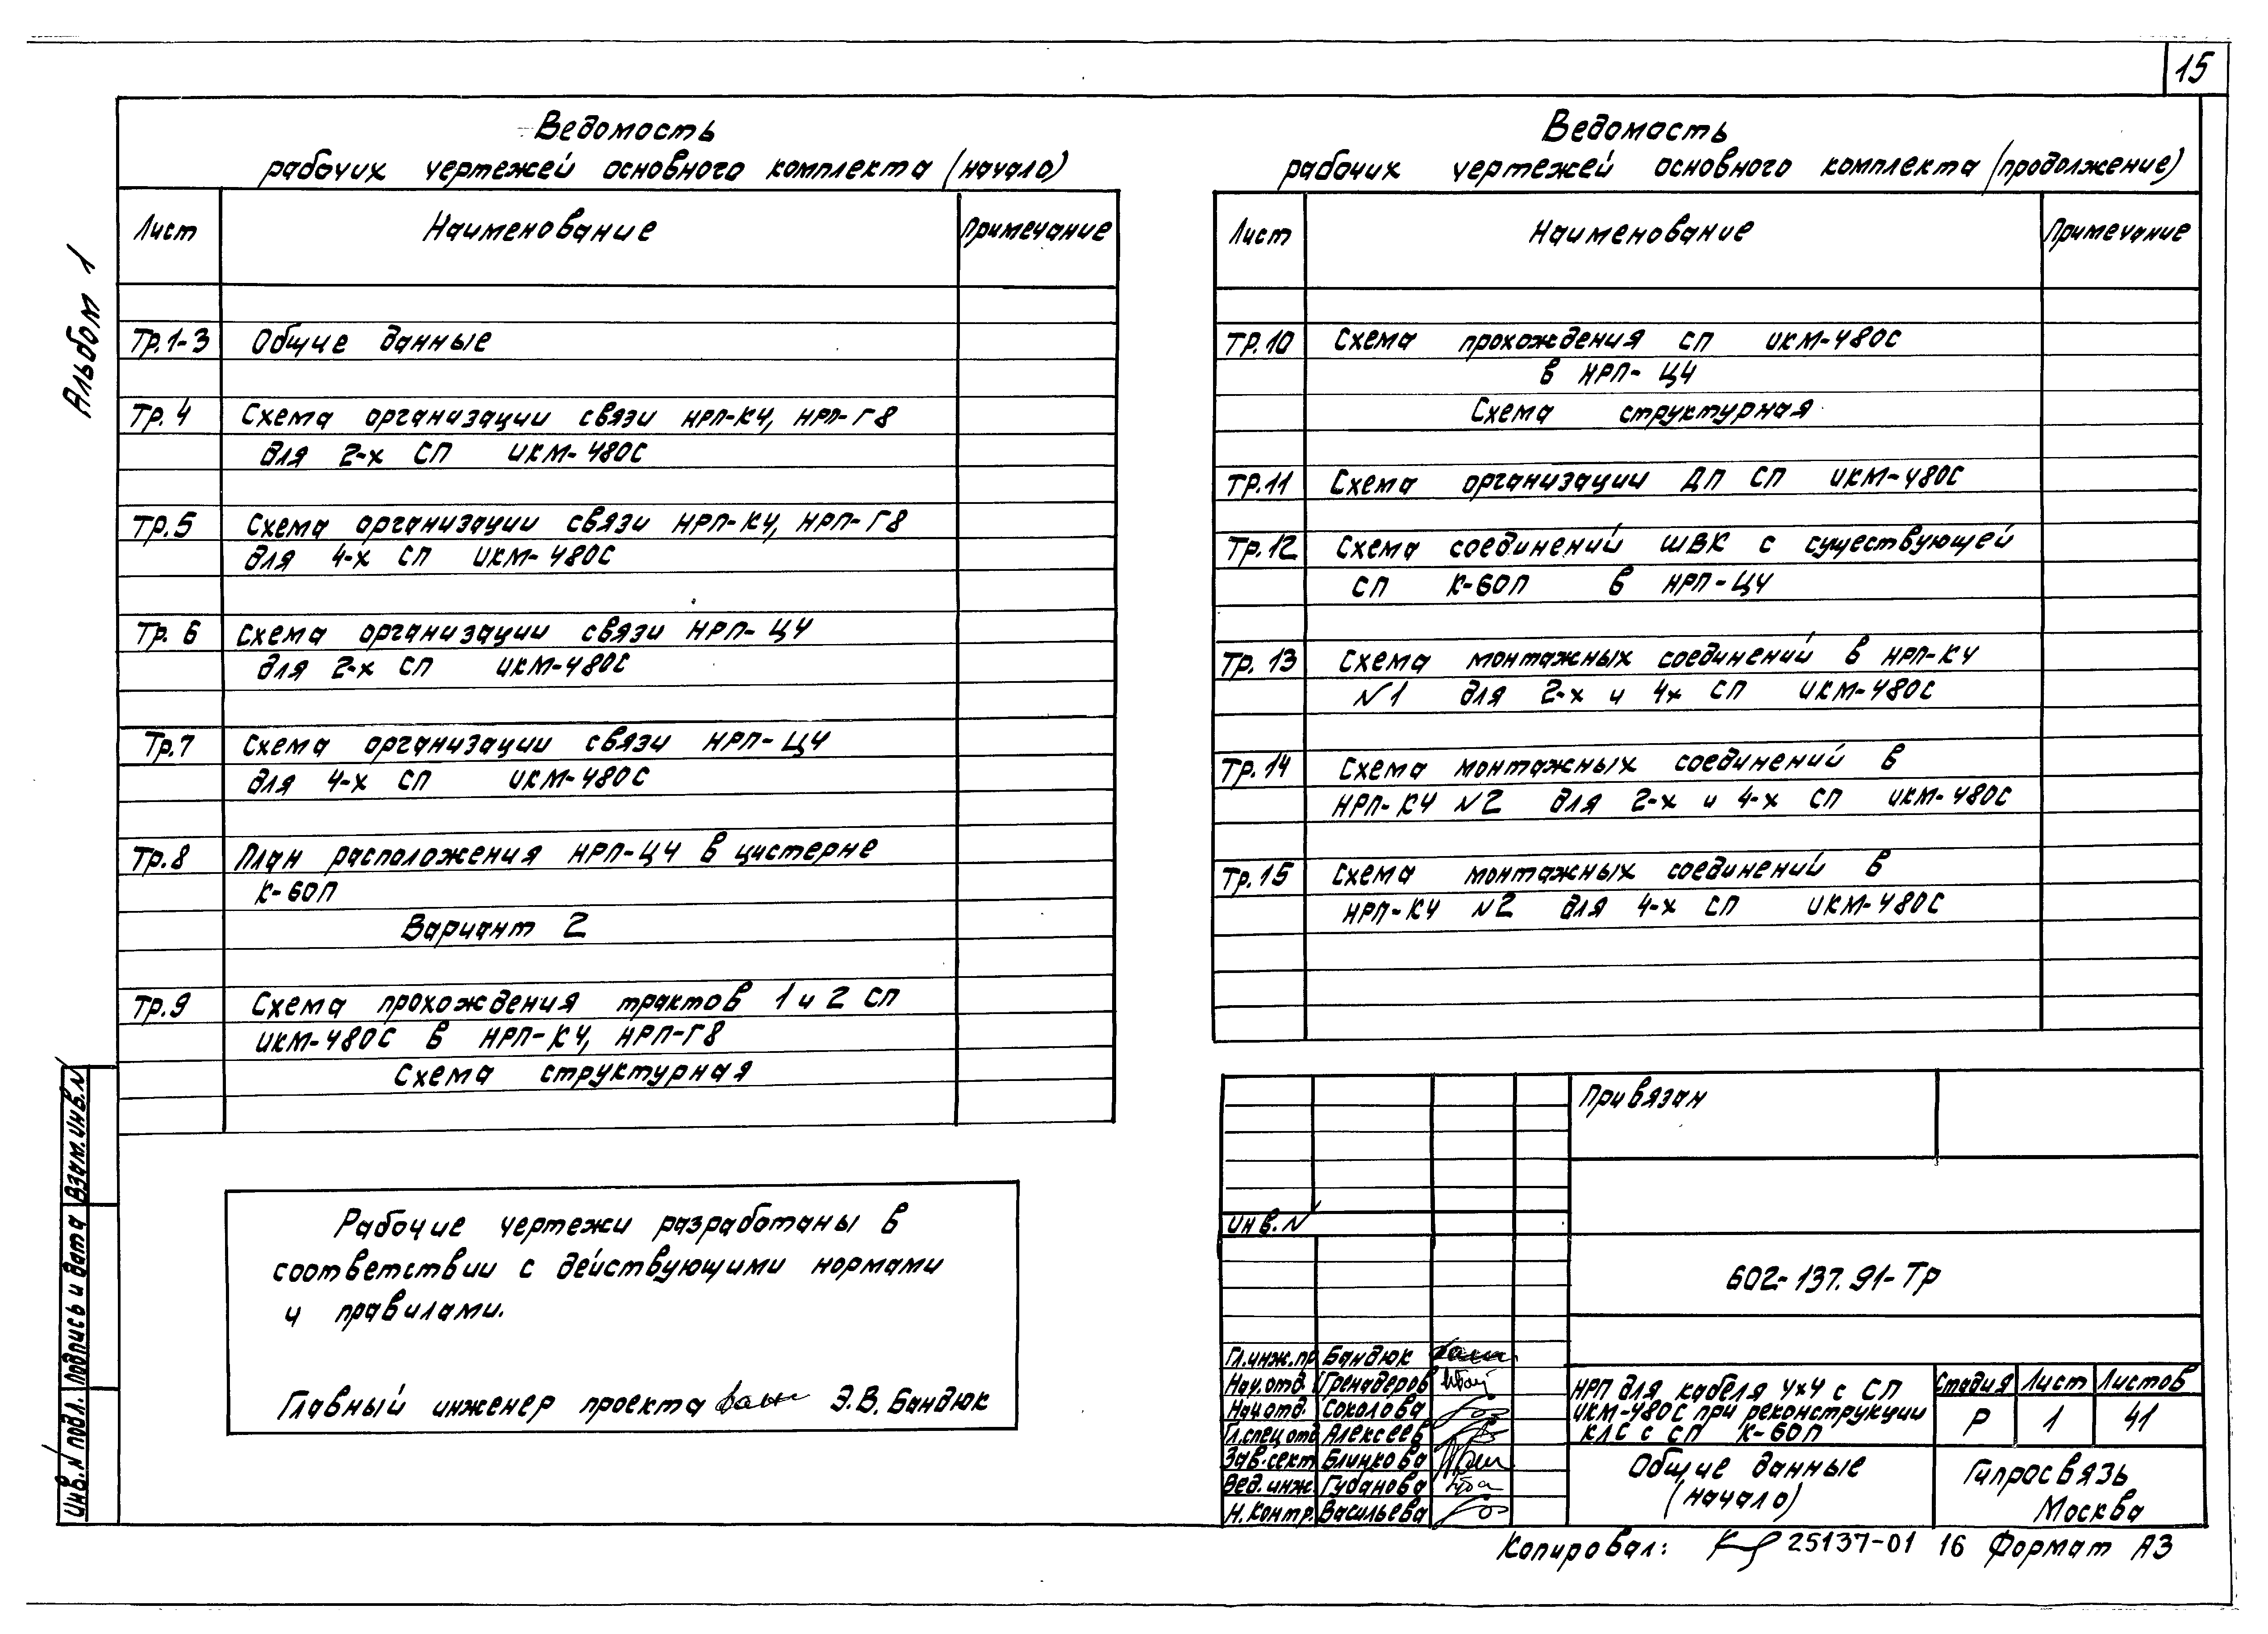 15
Альбом 1
Ведомость
рабочих чертежей основного комплекта (начало)
Лист Наименование Примечание
Тр.1-3 Общие данные
Тр. 4 Схема организации связи НРП-К4, НРП-Г8
для 2-х СП ИКМ-480С
Тр.5 Схема организации связи НРП-К4, НРП-Г8
для 4-х СП ИКМ-480С
Тр. 6 Схема организации связи НРП-Ц4
для 2-х СП ИКМ-480С
Тр.7 Схема организации связи НРП-Ц4
для 4-х СП ИКМ-480С
Тр.8 План расположения НРП-Ц4 в цистерне
К-60П
Вариант 2
Тр.9 Схема прохождения трактов 1 и 2 СП
ИКМ-480С в НРП-К4, НРП-Г8
Схема структурная
Рабочие чертежи разработаны в
соответствии с действующими нормами
и правилами.
Главный инженер проекта Э.В. Бандюк
Ведомость
рабочих чертежей основного комплекта (продолжение)
Лист Наименование Примечание
Тр.10 Схема прохождения СП ИКМ-480С
в НРП-Ц4
Схема структурная
Тр.11 Схема организации ДП СП ИКМ-480С
Тр.12 Схема соединений ШВК с существующей
СП К-60П в НРП-Ц4
Тр. 13 Схема монтажных соединений в НРП-К4
N1 для 2-х и 4х СП ИКМ-480С
Тр.14 Схема монтажных соединений в
НРП-К4 N2 для 2-х и 4-х СП ИКМ-480С
Тр.15 Схема монтажных соединений в
НРП-К4 N2 для 4-х СП ИКМ-480С
Привязан
Инв.N
602-137.91-Тр
Гл.инж.пр Бандюк
Нач.отд. Гренадеров
Нач.отд. Соколова
Гл.спец.отд Алексеев
Зав.сект Блинкова
Вед.инж. Губанова
Н.контр. Васильева
НРП для кабеля 4х4 с СП
ИКМ-480С при реконструкции
КЛС с СП К-60П
Стадия Лист Листов
Р 1 41
Общие данные
(начало)
Гипросвязь
Москва
Копировал: 25137-01 16 Формат А3
Инв.N подл. Подпись и дата Взам.инв.N